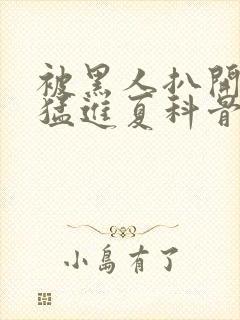 被黑人扒開
猛進夏科普
小島有了